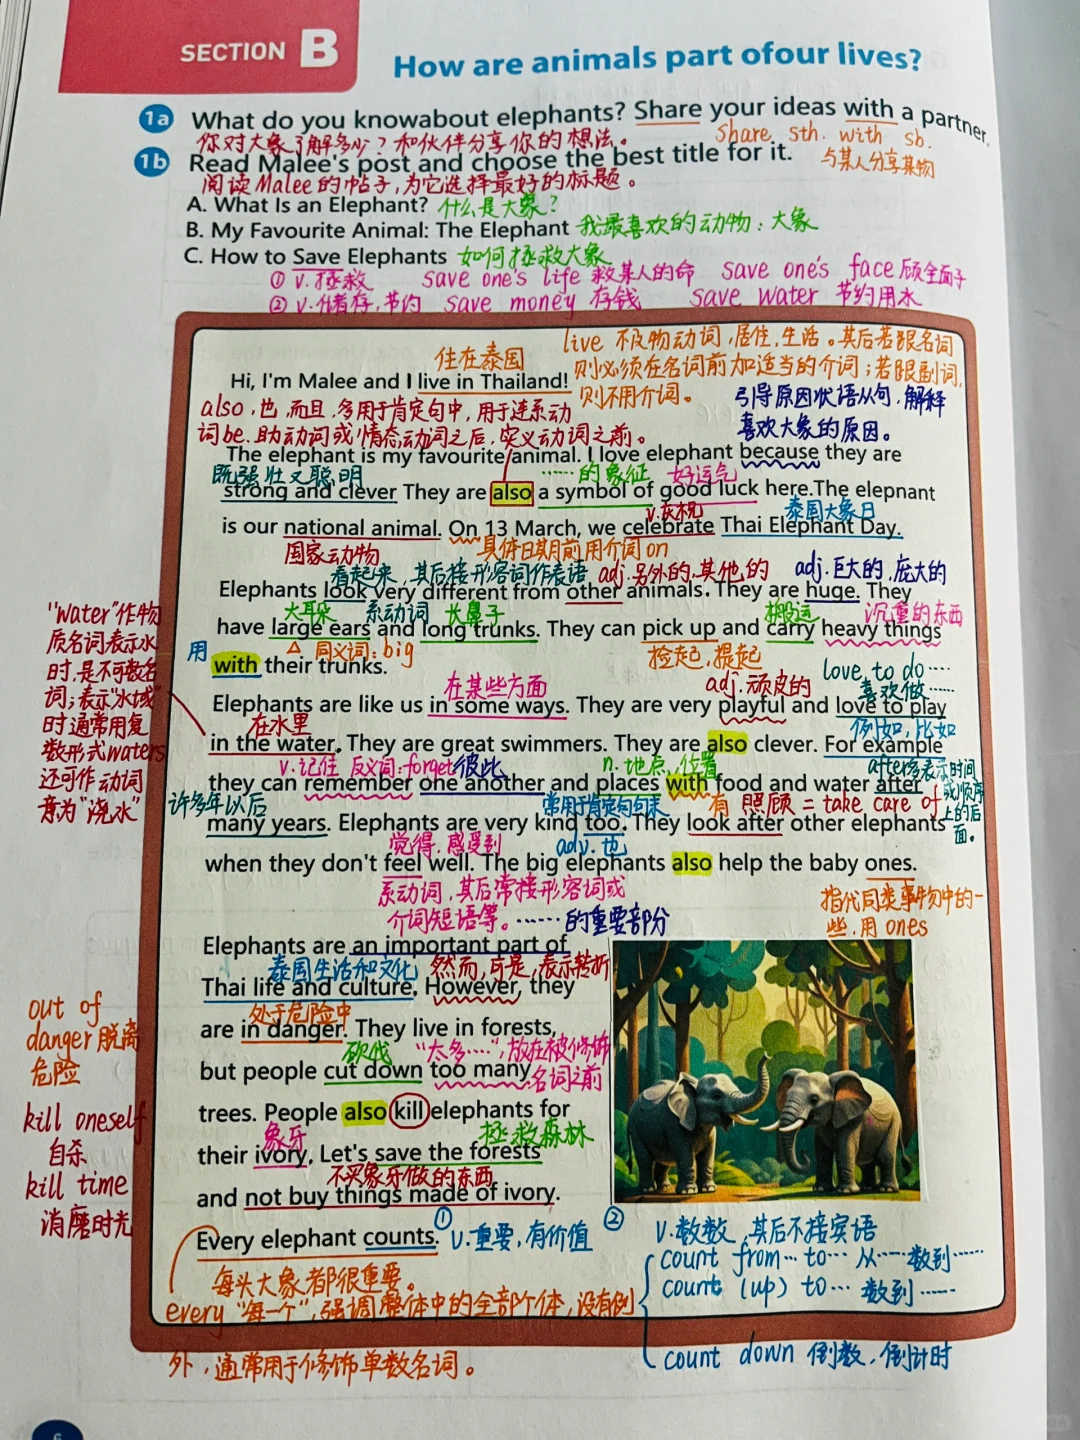 SECTION B
How are animals part ofour lives?
1a What do you knowabout elephants? Share your ideas with a partner.
你对大象了解多少？和伙伴分享你的想法。
share sth. with sb.
与某人分享某物
1b Read Malee's post and choose the best title for it.
阅读Malee的帖子,为它选择最好的标题。
A. What Is an Elephant? 什么是大象？
B. My Favourite Animal: The Elephant 我最喜欢的动物：大象
C. How to Save Elephants 如何拯救大象
① v.拯救 save one's life 救某人的命 save one's face 顾全面子
② v.储存,节约 save money 存钱 save water 节约用水
live 不及物动词,居住,生活。其后若跟名词
则必须在名词前加适当的介词；若跟副词,
则不用介词。
住在泰国
Hi, I'm Malee and I live in Thailand!
also,也,而且,多用于肯定句中,用于连系动
词be.助动词或情态动词之后,实义动词之前。
引导原因状语从句,解释
喜欢大象的原因。
The elephant is my favourite animal. I love elephant because they are
既强壮又聪明
……的象征 好运气
strong and clever They are also a symbol of good luck here.The elepnant
v.庆祝 泰国大象日
is our national animal. On 13 March, we celebrate Thai Elephant Day.
国家动物 具体日期前用介词on
看起来,其后接形容词作表语 adj.另外的,其他的 adj.巨大的,庞大的
Elephants look very different from other animals. They are huge. They
大耳朵 系动词 长鼻子 搬运 沉重的东西
have large ears and long trunks. They can pick up and carry heavy things
用 △ 同义词：big 捡起,提起
with their trunks.
love to do……
喜欢做……
在某些方面 adj.顽皮的
Elephants are like us in some ways. They are very playful and love to play
在水里 例如,比如
in the water. They are great swimmers. They are also clever. For example
v.记住 反义词：forget 彼此 n.地点,位置
after多表示时间
或顺序
上的后
面。
they can remember one another and places with food and water after
许多年以后 常用于肯定句句末 有 照顾 = take care of
many years. Elephants are very kind too. They look after other elephants
觉得,感受到 adv.也
when they don't feel well. The big elephants also help the baby ones.
系动词,其后常接形容词或
介词短语等。
指代同类事物中的一
些,用ones
"water"作物
质名词表示水
时,是不可数名
词；表示"水域"
时通常用复
数形式waters
还可作动词
意为"浇水"
……的重要部分
Elephants are an important part of
泰国生活和文化 然而,可是,表示转折
Thai life and culture. However, they
处于危险中
are in danger. They live in forests,
砍伐 "太多……",放在被修饰
名词之前
but people cut down too many
trees. People also kill elephants for
象牙 拯救森林
their ivory. Let's save the forests
不买象牙做的东西
and not buy things made of ivory.
out of
danger 脱离
危险
kill oneself
自杀
kill time
消磨时光
Every elephant counts. ① v.重要,有价值
每头大象都很重要。
② v.数数,其后不接宾语
count from…to… 从……数到……
count (up) to… 数到……
count down 倒数,倒计时
every "每一个",强调整体中的全部个体,没有例
外,通常用于修饰单数名词。
6